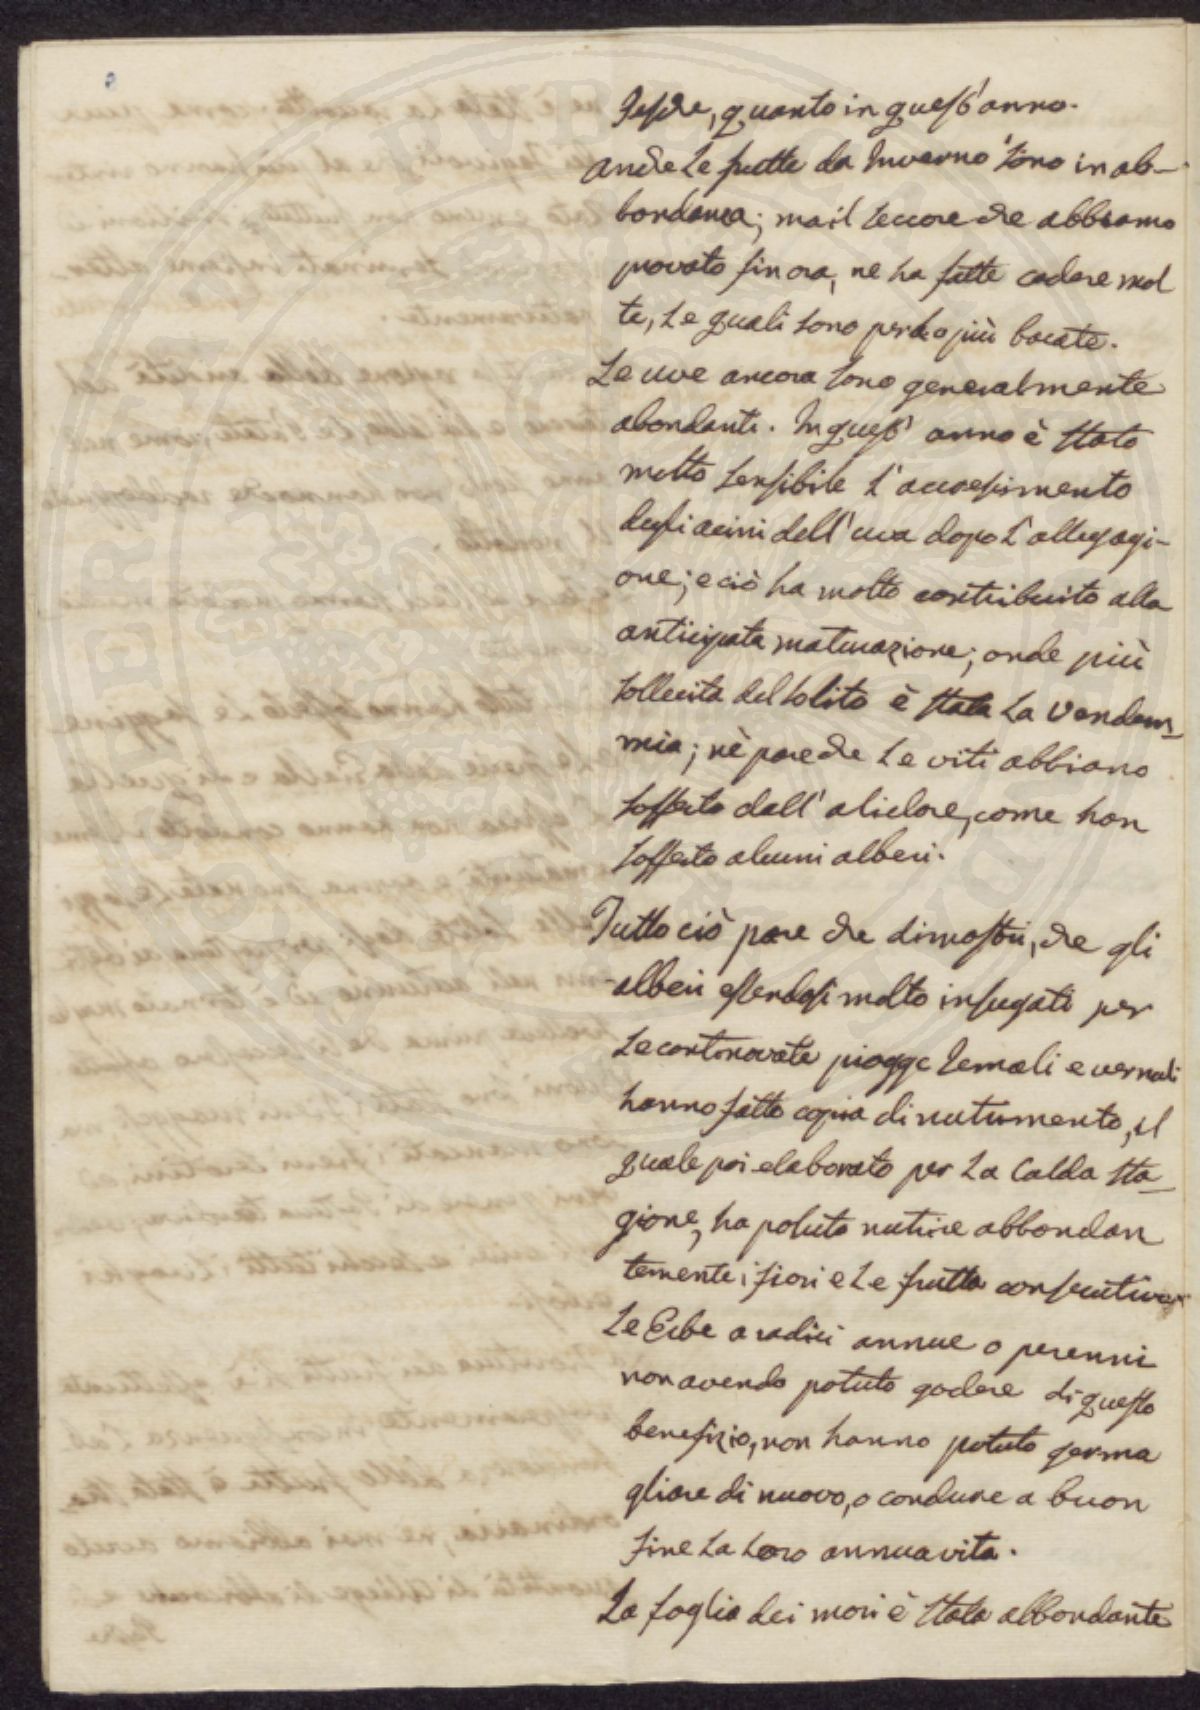 Pesche, quanto in quest'anno.
Anche le frutte da Inverno sono in ab-
bondanza; ma il seccore che abbiamo
provato fin ora, ne ha fatte cadere mol
te, le quali sono per lo più bacate.
Le uve ancora sono generalmente
abondanti. In quest' anno è stato
molto sensibile l'accrescimento
degli acini dell'uva dopo l'allegagi-
one; e ciò ha molto contribuito alla
anticipata maturazione; onde più
sollecita del solito è stata la Vendem-
mia; nè pare che le viti abbiano
sofferto dall'alidore, come han
sofferto alcuni alberi.
Tutto ciò pare che dimostri, che gli
alberi essendosi molto insugati per
le continovate piogge Iemali e vernali
hanno fatto copia di nutrimento, il
quale poi elaborato per la Calda sta-
gione, ha potuto nutrire abbondan
temente i fiori e le frutta consecutive
Le Erbe a radici annue o perenni
non avendo potuto godere di questo
benefizio, non hanno potuto germo
gliare di nuovo, o condurre a buon
fine la loro annua vita.
La foglia dei mori è stata abbondante